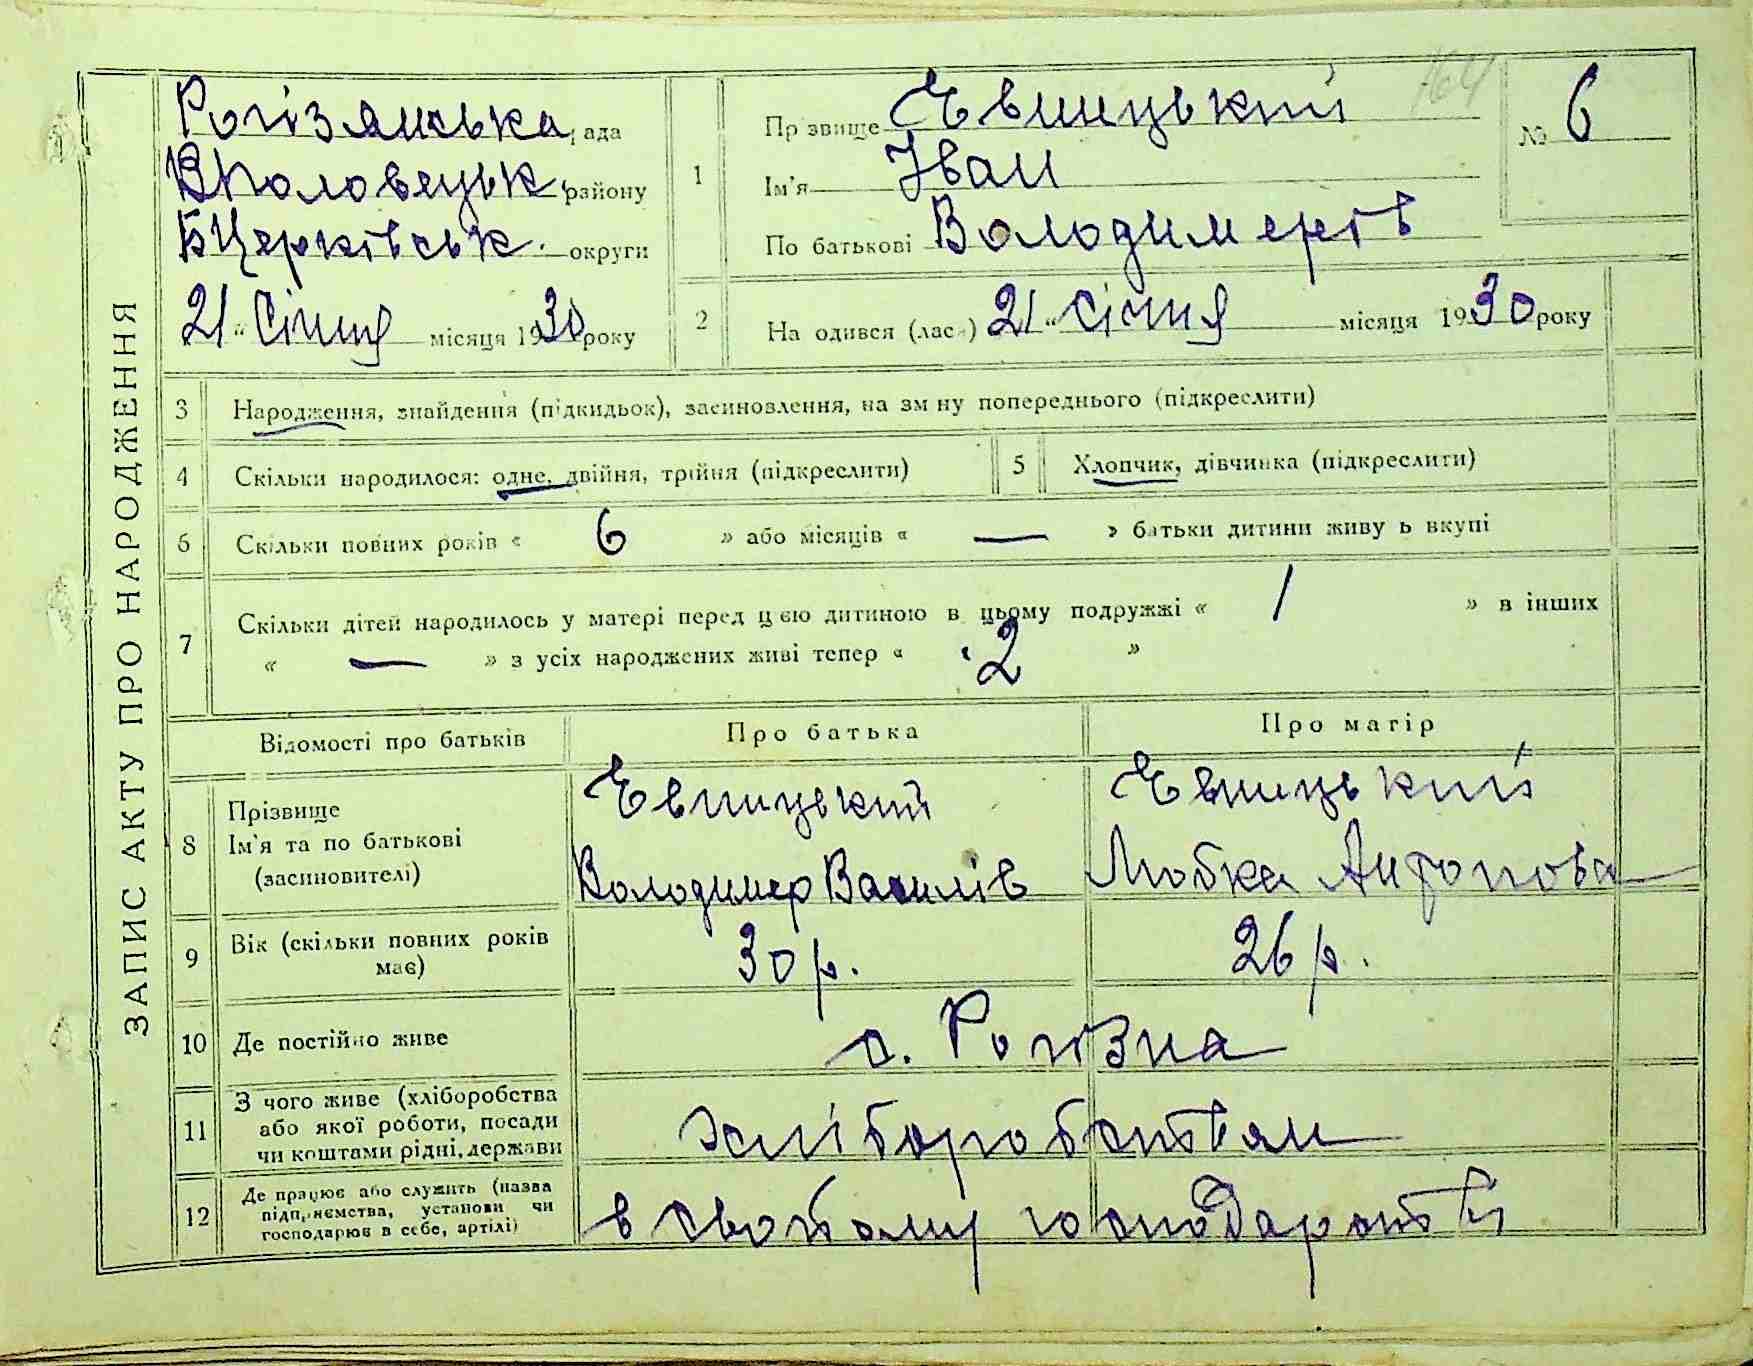 ЗАПИС АКТУ ПРО НАРОДЖЕННЯ
Рогізянська рада
ВПоловецьк району
БЦерківськ. округи
21 „ Січня місяця 1930 року
1
Прізвище Євницький
Ім'я Іван
По батькові Володимерів
№ 6
164
2
На одився (лась) 21 „ Січня місяця 1930 року
3 Народження, знайдення (підкидьок), засиновлення, на зм ну попереднього (підкреслити)
4 Скільки народилося: одне, двійня, трійня (підкреслити)
5 Хлопчик, дівчинка (підкреслити)
6 Скільки повних років « 6 » або місяців « — » батьки дитини живу ь вкупі
7 Скільки дітей народилось у матері перед цією дитиною в цьому подружжі « 1 » в інших
« — » з усіх народжених живі тепер « 2 »
Відомості про батьків
Про батька
Про матір
8 Прізвище
Ім'я та по батькові
(засиновителі)
Євницький
Володимер Василів
Євницький
Любка Антонова
9 Вік (скільки повних років
має)
30 р.
26 р.
10 Де постійно живе
с. Рогізна
11 З чого живе (хліборобства
або якої роботи, посади
чи коштами рідні, держави
хліборобством
12 Де працює або служить (назва
підприємства, установи чи
господарює в себе, артілі)
в своъому господарстві